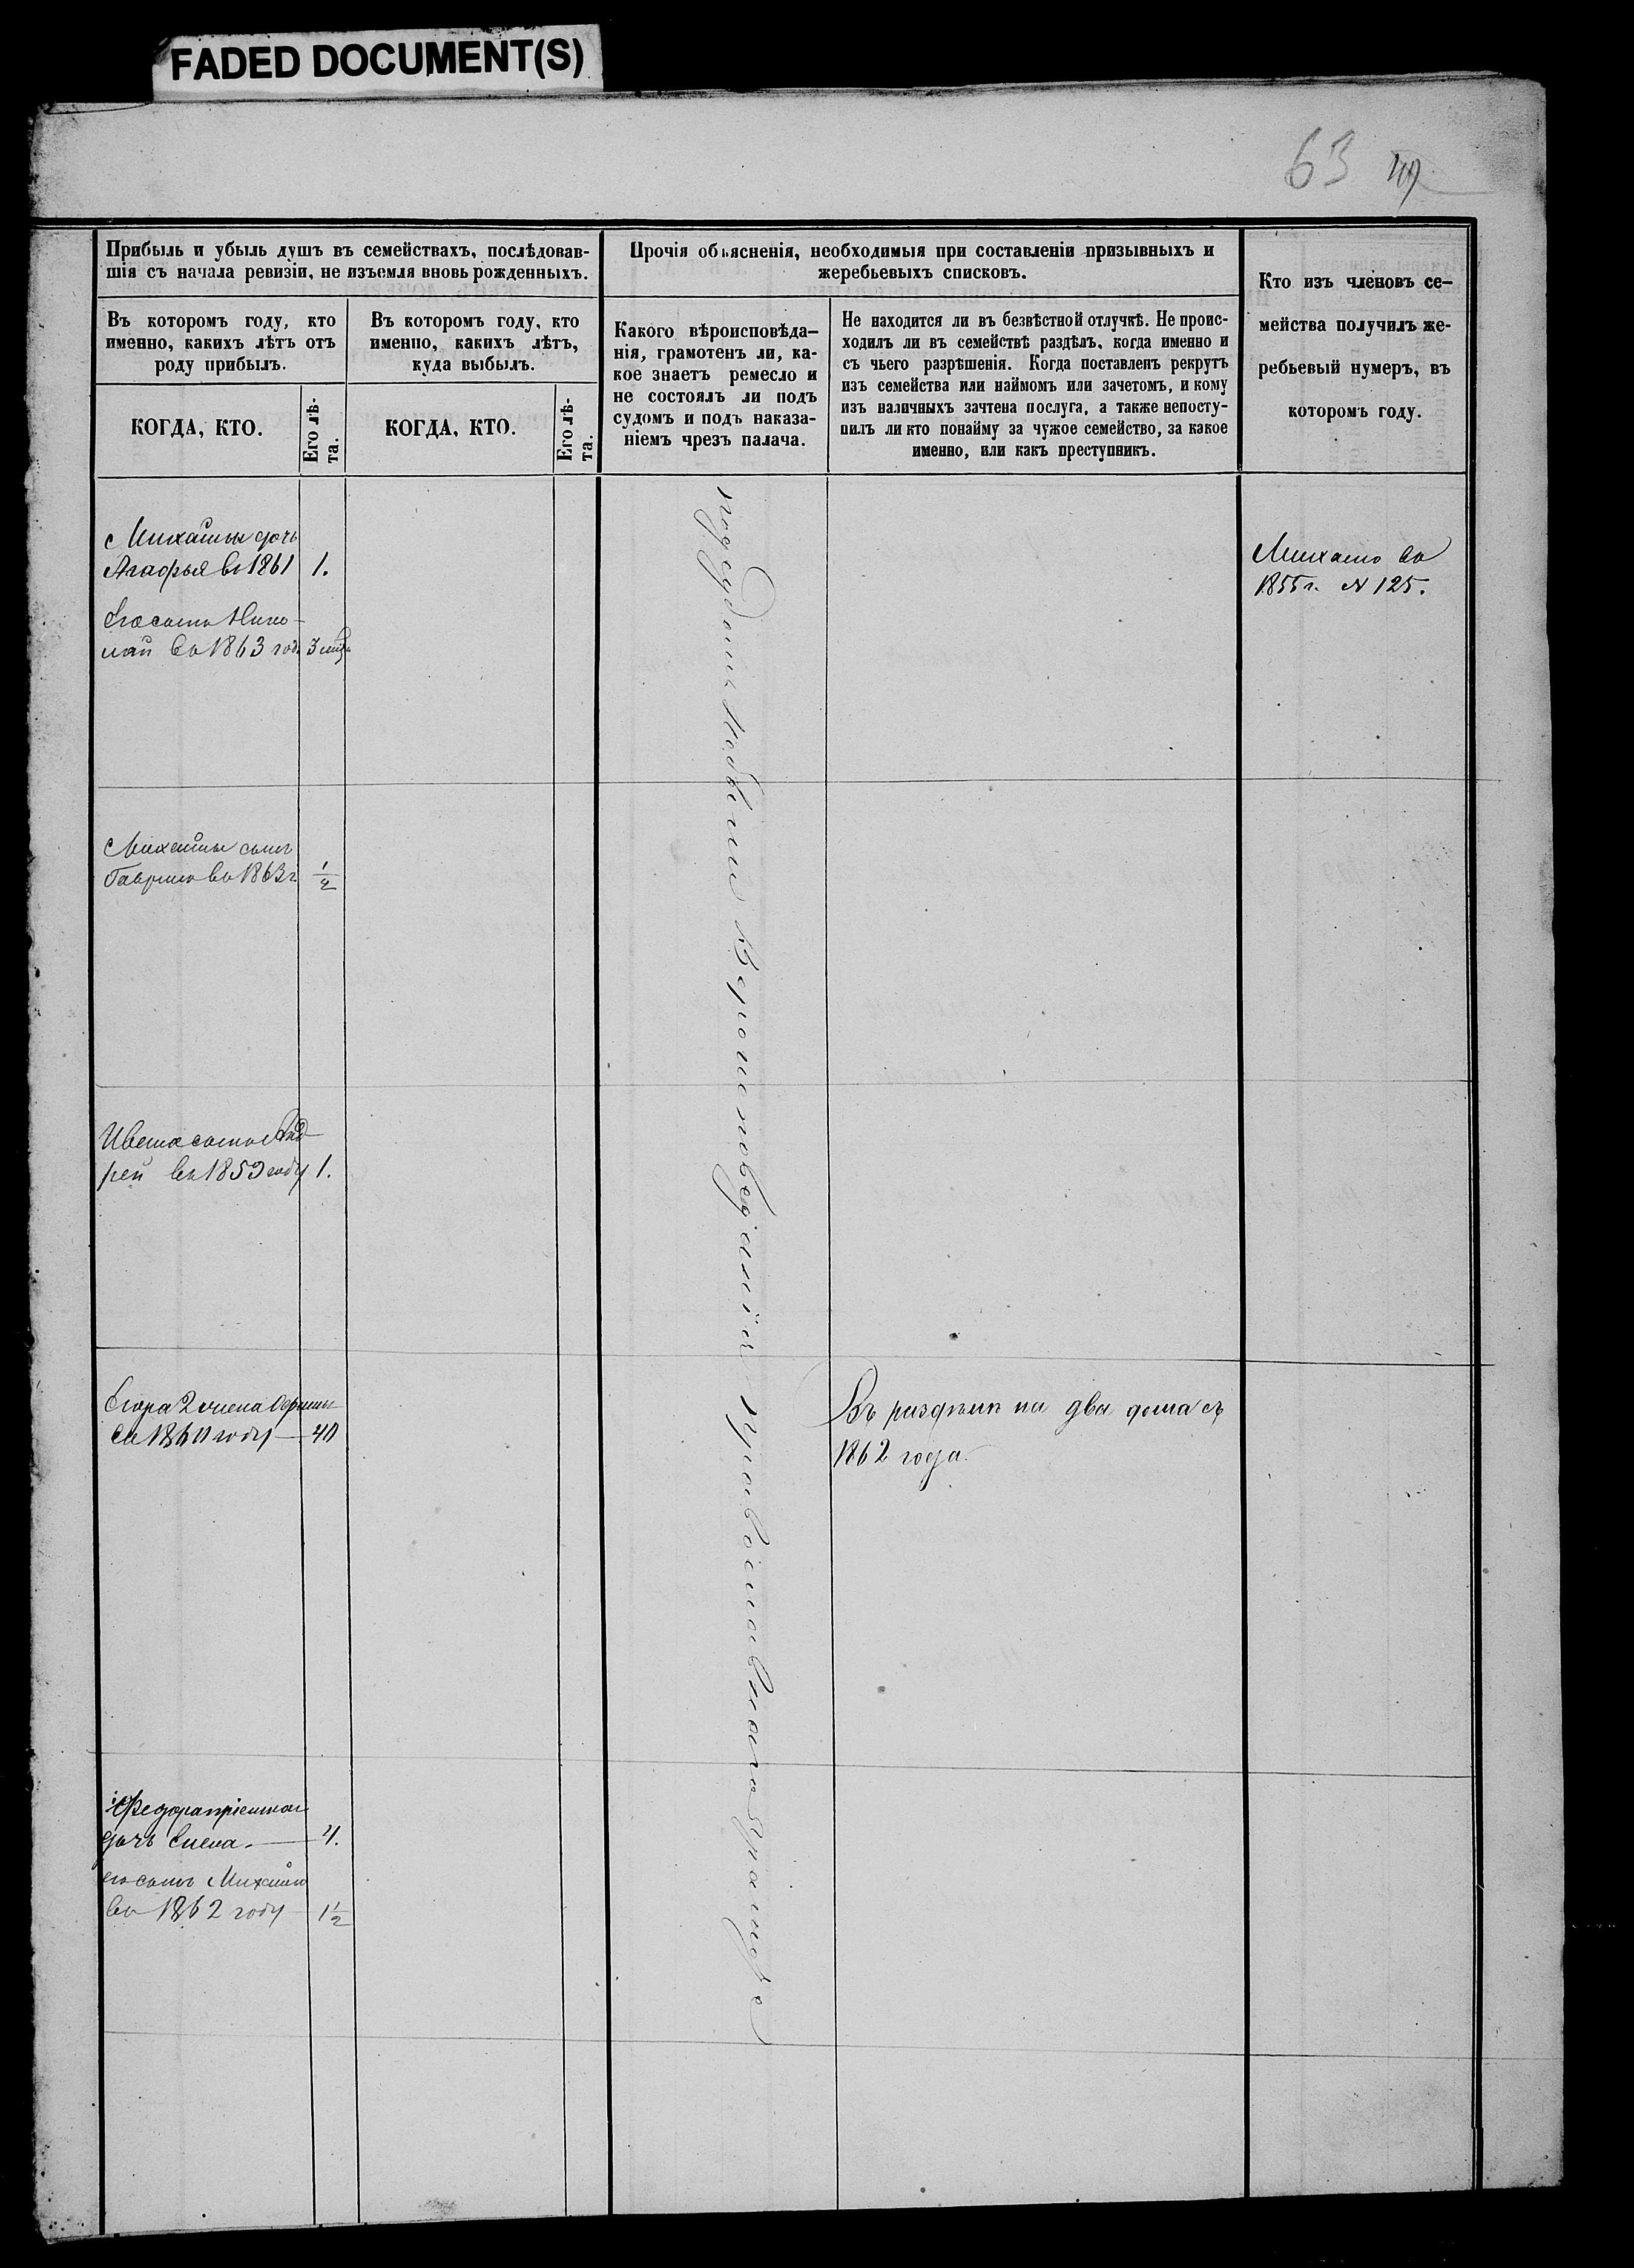 FADED DOCUMENT(S)
63
Прибыль и убыль душъ въ семействахъ, послѣдовав-
шія съ начала ревизіи, не изъемля вновь рожденныхъ.
Въ которомъ году, кто
именно, какихъ лѣтъ отъ
роду прибылъ.
КОГДА, КТО.
Его лѣ-
та.
Въ которомъ году, кто
именно, какихъ лѣтъ,
куда выбылъ.
КОГДА, КТО.
Его лѣ-
та.
Прочія объясненія, необходимыя при составленіи призывныхъ и
жеребьевыхъ списковъ.
Какого вѣроисповѣда-
нія, грамотенъ ли, ка-
кое знаетъ ремесло и
не состоялъ ли подъ
судомъ и подъ наказа-
ніемъ чрезъ палача.
Не находится ли въ безвѣстной отлучкѣ. Не проис-
ходилъ ли въ семействѣ раздѣлъ, когда именно и
съ чьего разрѣшенія. Когда поставленъ рекрутъ
изъ семейства или наймомъ или зачетомъ, и кому
изъ наличныхъ зачтена послуга, а также непосту-
пилъ ли кто понайму за чужое семейство, за какое
именно, или какъ преступникъ.
Кто изъ членовъ се-
мейства получилъ же-
ребьевый нумеръ, въ
которомъ году.
Михайлы дочь
Агафья въ 1861 1.
Его сынъ Нико-
лай въ 1863 году 3
Михайлы сынъ
Гаврило въ 1863 г ½
Ивана сынъ Анд-
рей въ 1859 году 1.
Егора 2 жена
въ 1860 году 40
Федора пріемная
дочь Елена 4.
его сынъ Михайло
въ 1862 году 1½
подсудомъ небыли Вероисповеданія православнаго
Въ раздѣлѣ на два дома съ
1862 года.
Михайло въ
1855 г. № 125.